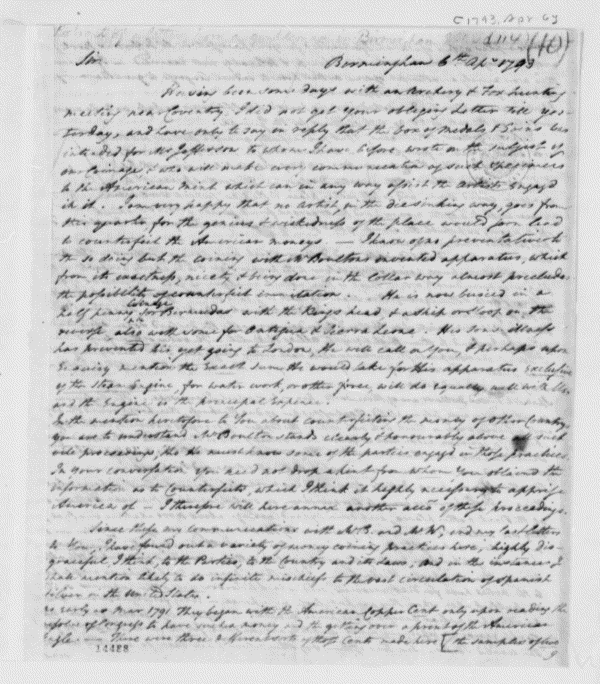 [1793, Apr 6]
1114 (10)
Sir Birmingham 6th Apl. 1793
Having been some days with an Archery & Fox hunting
meeting near Coventry I did not get your obliging letter till yes-
terday, and have only to say in reply that the Box of medals & Coins was
intended for Mr Jefferson to whom I have before wrote on the subject of
our Coinage & who will make every communication of such specimens
to the American Mint which can in any way assist the Artists engaged
in it. I am very happy that no artist in the die sinking way, goes from
this quarter for the genius & wickedness of the place would soon lead
to counterfeit the American moneys — I know of no preventative to
the so doing but the coining with Mr Boultons invented apparatus, which
from its exactness, nicety & being done in the Collar way almost precludes
the possibility of counterfeit imitation. — He is now busied in a
half penny coinage for Bermudas with the Kings head & a ship or sloop on the
reverse also with some for Antigua & Sierra Leona. His Sons illness
has prevented his yet going to London, He will call on You, & perhaps upon
Enquiry mention the Exact sum He would take for His apparatus Exclusive
of the Steam Engine, for water work, or other force, will do equally well with
and the Engine is the principal Expence.
In the mention heretofore to You about counterfeiting the money of other Country
you are to understand Mr Boulton stands clearly & honourably above all such
vile proceedings, tho He must know some of the parties engaged in those practices
In your conversation You need not drop a hint from whom You obtained the
information as to Counterfeits, which I think it highly necessary to apprise
America of — I therefore will here annex another actts of those proceedings.
Since those my communications with Mr B. and Mr W, and my last letters
to You, I have found out a variety of money coining practices here, highly dis-
graceful I think, to the Parties, to the Country and its laws, and in the instances I
shall mention likely to do infinite mischief to the vast circulation of Spanish
Silver in the United States.
As early as Mar. 1791 They began with the American Copper Cent only upon reading the
resolve of Congress to have such a money and the getting over a print of the American
Eagle — There were three different sorts of those Cents made here [the samples of
14488